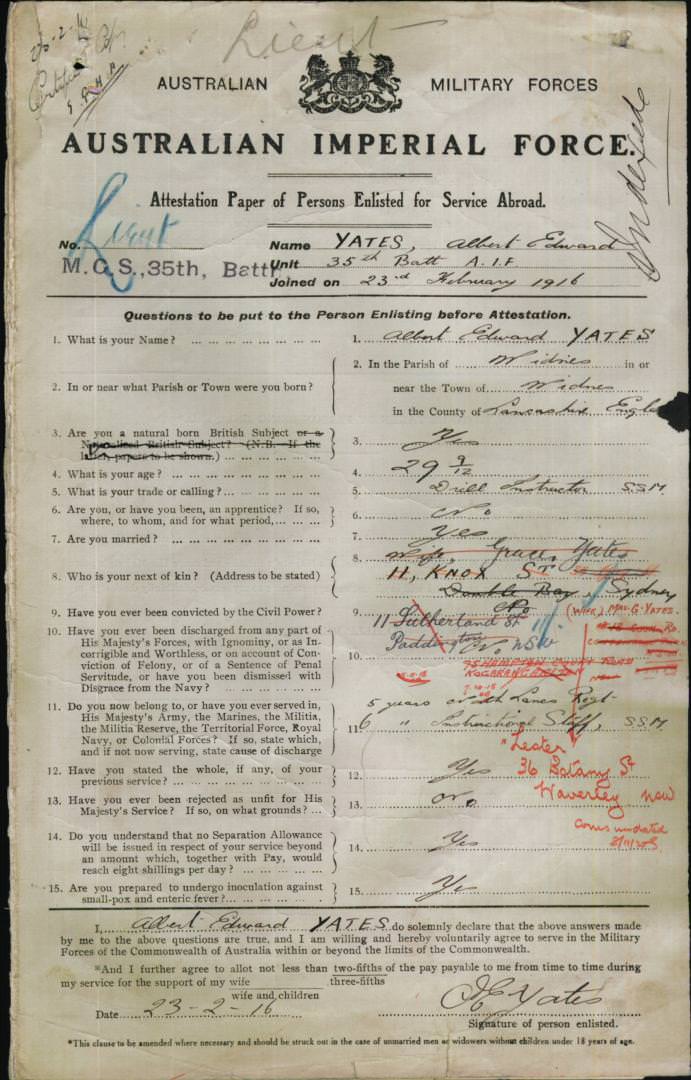 Lieut
AUSTRALIAN MILITARY FORCES
AUSTRALIAN IMPERIAL FORCE.
Indexed
Attestation Paper of Persons Enlisted for Service Abroad.
No. Lieut
Name YATES, Albert Edward
M.G.S., 35th, Battn
Unit 35th Batt A.I.F
Joined on 23rd February 1916
Questions to be put to the Person Enlisting before Attestation.
1. What is your Name?
1. Albert Edward YATES
2. In or near what Parish or Town were you born?
2. In the Parish of Widnes in or
near the Town of Widnes
in the County of Lancashire Engl
3. Are you a natural born British Subject or a
Naturalized British Subject? (N.B. If the
latter, papers to be shown.)
3. Yes
4. What is your age?
4. 29 9/12
5. What is your trade or calling?
5. Drill Instructor S.S.M.
6. Are you, or have you been, an apprentice? If so,
where, to whom, and for what period,
6. No
7. Are you married?
7. Yes
8. Who is your next of kin? (Address to be stated)
8. Wife, Grace Yates
11, KNOX ST
Double Bay, Sydney
(Wife) Mrs. G. YATES.
11 Sutherland St
Paddington NSW
75 HAMPTON COURT ROAD
KOGARAH
9. Have you ever been convicted by the Civil Power?
9. No
10. Have you ever been discharged from any part of
His Majesty's Forces, with Ignominy, or as In-
corrigible and Worthless, or on account of Con-
viction of Felony, or of a Sentence of Penal
Servitude, or have you been dismissed with
Disgrace from the Navy?
10. No
11. Do you now belong to, or have you ever served in,
His Majesty's Army, the Marines, the Militia,
the Militia Reserve, the Territorial Force, Royal
Navy, or Colonial Forces? If so, state which,
and if not now serving, state cause of discharge
5 years Lancs Regt
11. 6 " Instructional Staff, S.S.M.
"Lester"
36 Botany St
Waverley NSW
12. Have you stated the whole, if any, of your
previous service?
12. Yes
13. Have you ever been rejected as unfit for His
Majesty's Service? If so, on what grounds?
13. No
14. Do you understand that no Separation Allowance
will be issued in respect of your service beyond
an amount which, together with Pay, would
reach eight shillings per day?
14. Yes
15. Are you prepared to undergo inoculation against
small-pox and enteric fever?
15. Yes
I, Albert Edward YATES do solemnly declare that the above answers made
by me to the above questions are true, and I am willing and hereby voluntarily agree to serve in the Military
Forces of the Commonwealth of Australia within or beyond the limits of the Commonwealth.
*And I further agree to allot not less than two-fifths of the pay payable to me from time to time during
three-fifths
my service for the support of my wife
wife and children
Date 23-2-16
A E Yates
Signature of person enlisted.
*This clause to be amended where necessary and should be struck out in the case of unmarried men or widowers without children under 18 years of age.